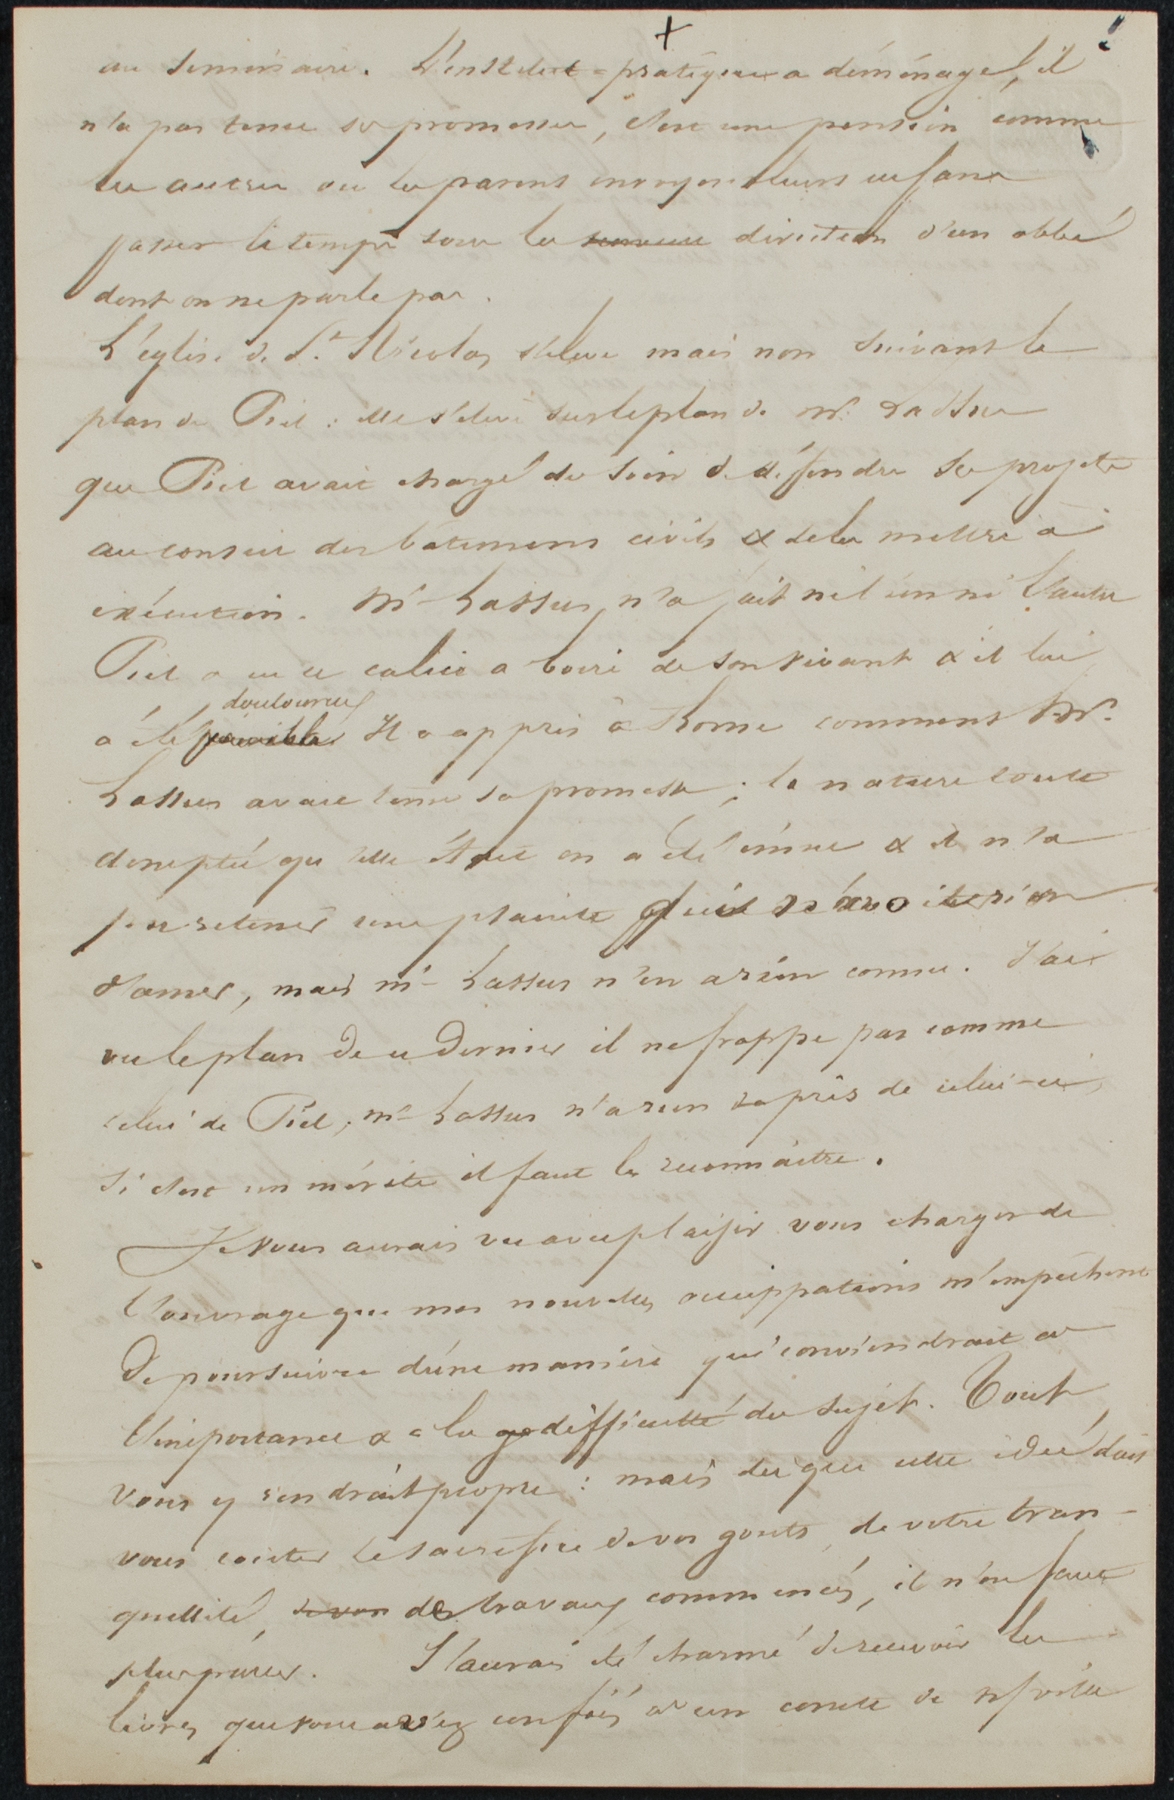 au séminaire. L'institut pratique a déménagé, il
n'a pas tenu sa promesse, c'est une pension comme
les autres où les parens envoyent leurs enfans
passer le temps sous la direction d'un abbé
dont on ne parle pas.
L'église de St. Nicolas s'élève mais non suivant le
plan de Piel : elle s'élève sur le plan de Mr. Lassus
que Piel avait chargé du soin de défendre ses projets
au conseil des bâtimens civils & de les mettre à
exécution. Mr Lassus n'a fait ni l'un ni l'autre
Piel a eu ce calice a boire de son vivant & il lui
a été douloureux Il a appris à Rome comment Mr.
Lassus avait tenu sa promesse ; la nature toute
domptée qu'elle était en a été émue & il n'a
pu retenir une plainte
d'amer, mais Mr Lassus n'en a rien connu. J'ai
vu le plan de ce dernier il ne frappe pas comme
celui de Piel ; Mr Lassus n'a rien pris de celui-ci,
si c'est un mérite il faut le reconnaitre.
Je vous aurais vu avec plaisir vous charger de
l'ouvrage que mes nouvelles occuppations m'empêchent
de poursuivre d'une manière qui conviendrait a
l'importance & a la difficulté du sujet. Tout
vous y rendrait propre : mais dès que cette idée doit
vous couter le sacrifice de vos gouts, de votre tran-
quillité, des travaux commencés, il n'en faut
plus parler. J'aurais été charmé de recevoir les
livres que vous aviez confiés a un comte de